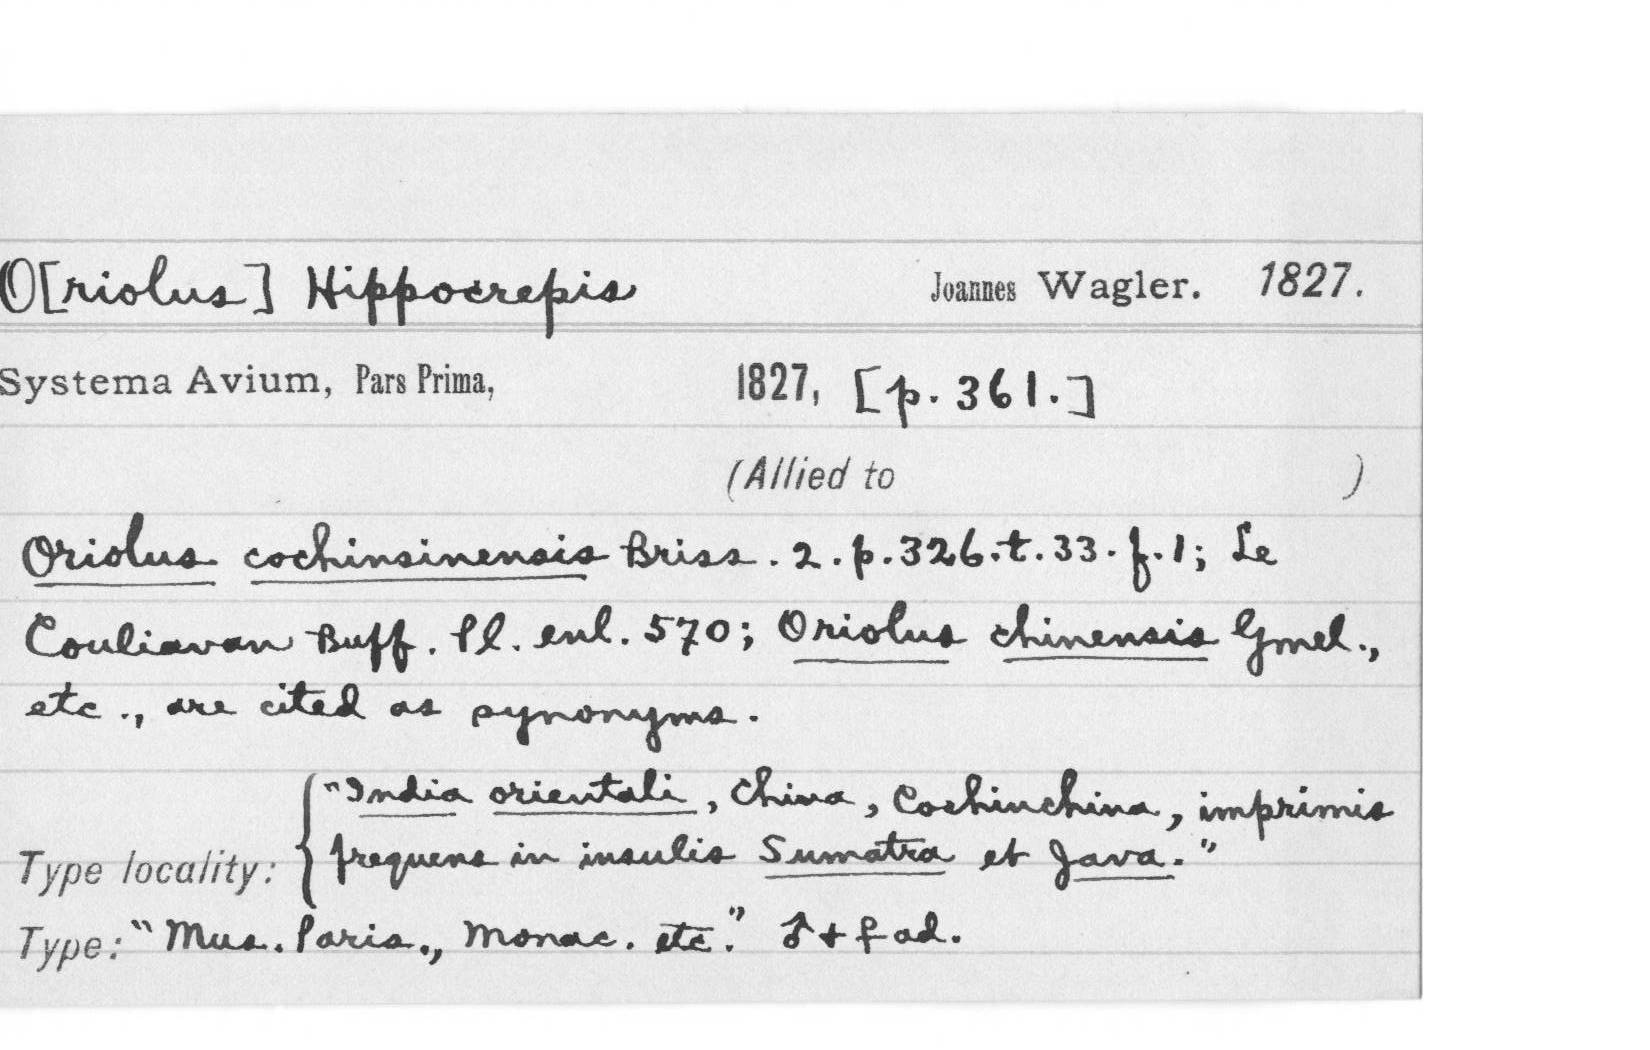 O[riolus] Hippocrepis Joannes Wagler. 1827.
Systema Avium, Pars Prima, 1827, [p. 361.]
(Allied to )
Oriolus cochinsinensis Briss. 2. p. 326. t. 33. f. 1; Le
Couliavan Buff. Pl. enl. 570; Oriolus chinensis Gmel.,
etc., are cited as synonyms.
"India orientali, China, Cochinchina, imprimis
Type locality: { frequens in insulis Sumatra et Java."
Type: "Mus. Paris., Monac. etc." ♂ + ♀ ad.